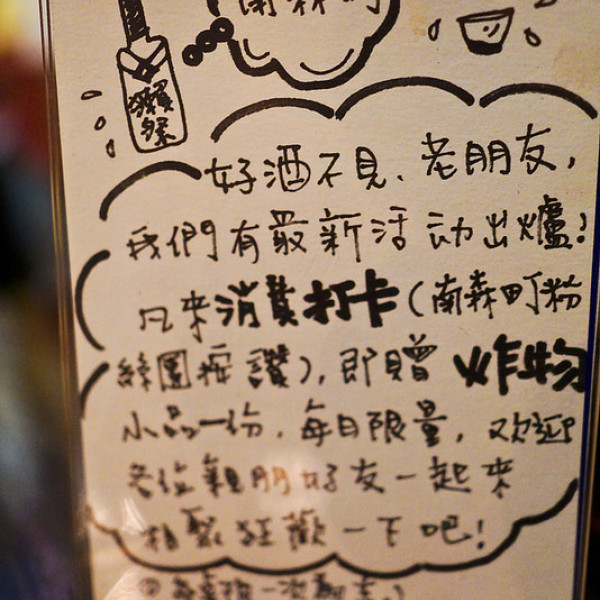 南森町
獺祭
好酒不見、老朋友,
我們有最新活动出爐!
凡來消費打卡(南森町粉
絲團按讚),即贈炸物
小品一份,每日限量,欢迎
各位親朋好友一起來
相聚狂歡一下吧!